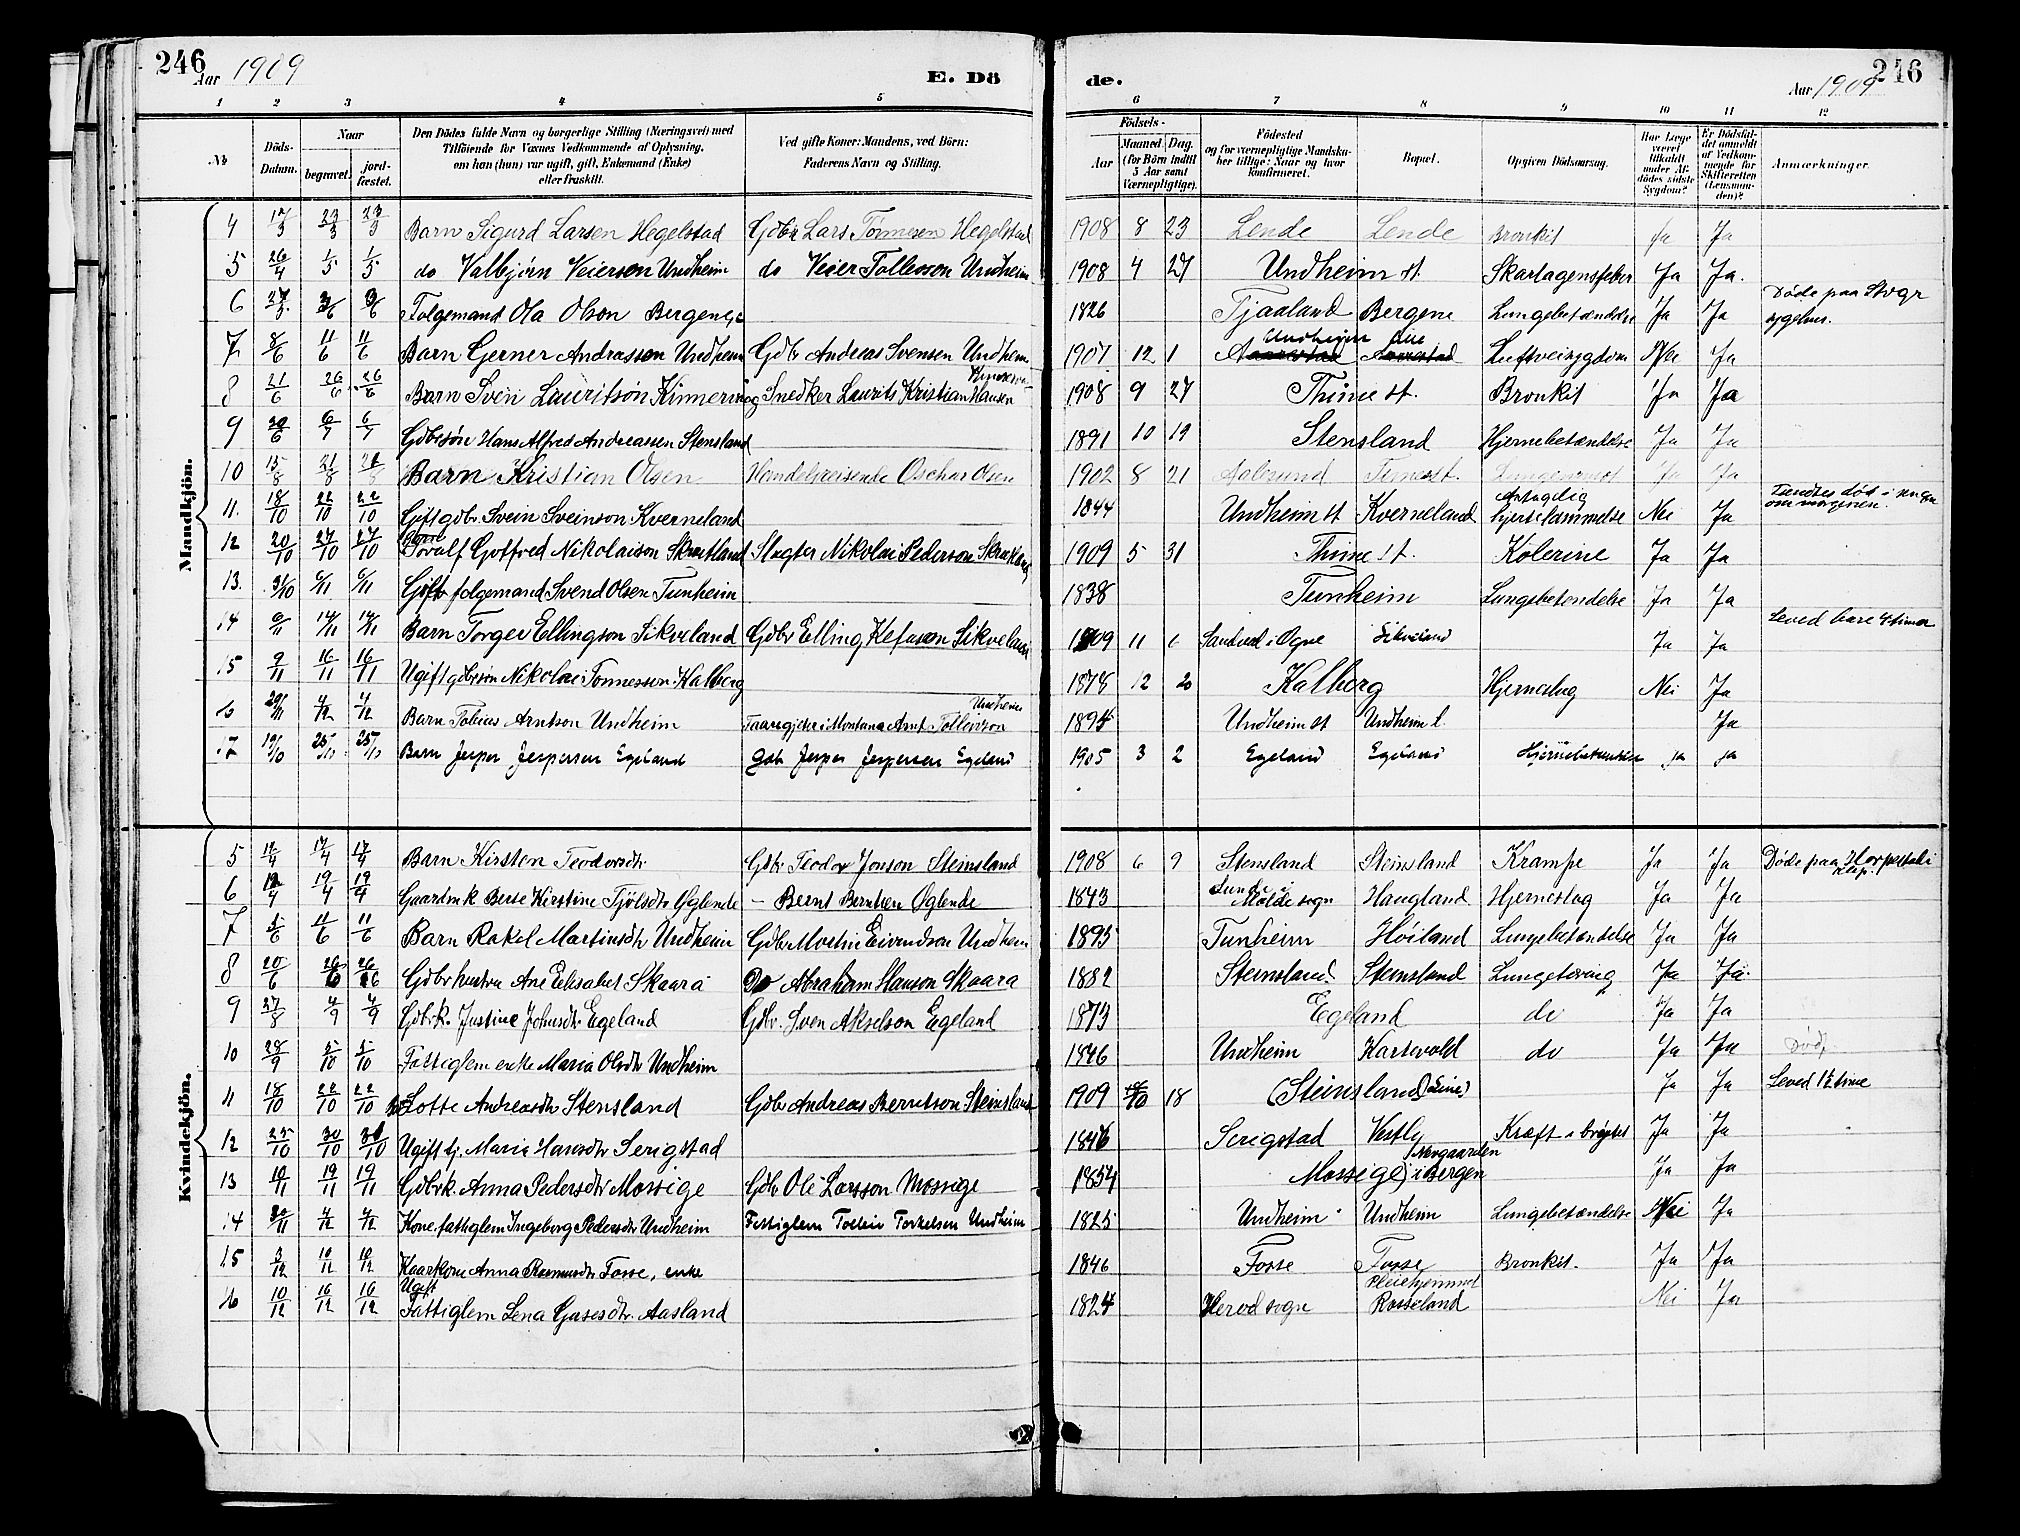 246
Aar 1909
E. Dö
de.
Aar 1909
246
1 2 3 4 5 6 7 8 9 10 11 12
No
Döds-Datum.
Naar
begravet.
jord-fæstet.
Den Dödes fulde Navn og borgerlige Stilling (Næringsvei) med
Tilføiende for Voxnes Vedkommende af Oplysning,
om han (hun) var ugift, gift, Enkemand (Enke)
eller fraskilt.
Ved gifte Koner: Mandens, ved Börn:
Faderens Navn og Stilling.
Födsels-
Aar
Maaned. Dag.
(for Börn indtil
5 Aar samt
Værnepligtige).
Födested
og for værnepligtige Mandska-
ber tillige: Naar og hvor
konfirmeret.
Bopæl.
Opgiven Dödsaarsag.
Har Læge
været
tilkaldt
under Af-
dödes sidste
Sygdom?
Er Dödsfal-
det anmeldt
af Vedkom-
mende for
Skifteretten
(Lensman-
den)?
Anmærkninger.
Mandkjön.
4 17/3 23/3 23/3 Barn Sigurd Larsen Hegelstad Gdbr Lars Tönnesen Hegelstad 1908 8 23 Lende Lende Bronkit Ja Ja
5 26/4 1/5 1/5 do Valbjörn Veierson Undheim do Veier Tollesson Undheim 1908 4 27 Undheim st. Skarlagensfeber Ja Ja.
6 Folgemand Ola Olson Bergene 1826 Tjaaland Bergene Lungebetændelse Ja Ja Döde paa Stvgr sygehus.
7 8/6 11/6 11/6 Barn Gerner Andrasson Undheim Gdbr Andreas Svensen Undheim 1907 12 1 Undheim Luftveisygdom Nei Ja
8 21/6 26/6 26/6 Barn Sven Lauritsön Kinnerviig Snedker Laurits Kristian Hansen 1908 9 27 Thime st. Bronkit Ja Ja
9 6/7 6/7 Gdbrsön Hans Alfred Andreassen Stensland 1891 10 19 Stensland Hjernebetændelse Ja Ja
10 15/8 21/8 21/8 Barn Kristian Olsen Handelsreisende Oschar Olsen 1902 8 21 Aalesund Time st. Ja Ja
11. 18/10 22/10 22/10 Gift gdbr. Svein Sveinson Kverneland 1844 Undheim st Kverneland Antagelig hjertelammelse Nei Ja
12 20/10 27/10 27/10 Barn Toralf Gotfred Nikolaison Skrætland Slagter Nikolai Pederson 1909 5 31 Thime st. Kolerine Ja Ja
13. 31/10 6/11 6/11 Gift folgemand Svend Olsen Tunheim 1838 Tunheim Lungebetendelse Ja Ja
14 6/11 14/11 14/11 Barn Torger Ellingson Sikveland Gdbr Elling Kefasson Sikveland 1909 11 6 Sandved i Ogne Sikveland Ja Ja Leved bare 4 timer
15 9/11 16/11 16/11 Ugift gdbrsön Nikolai Tonnesson Kalberg 1878 12 20 Kalberg Hjerneslag Nei Ja
16 4/12 4/12 Barn Tobias Arntson Undheim Faaregjeter i Montana Arnt Tollevsson Undheim 1894 Undheim st Undheim l. Ja
17 19/10 25/10 25/10 Barn Jesper Jespersen Egeland Gdb Jesper Jespersen Egeland 1905 3 2 Egeland Egeland Hjernebetændelse ja ja
Kvindekjön.
5 17/4 17/4 Barn Kirsten Teodorsdtr Gdbr Teodor Jonson Steinsland 1908 6 9 Stensland Steinsland Krampe Ja Ja Döde paa
6 19/4 19/4 Gaardmk Berte Kirstine Tjölsdtr Öglende — Bernt Berntsen Öglende 1843 Sunde i Molde sogn Haugland Hjerneslag Ja Ja
7 5/6 11/6 11/6 Barn Rakel Martinsdtr Undheim Gdbr Martin Eivendson Undheim 1895 Tunheim Höiland Lungebetændelse Ja Ja
8 20/6 26/6 26/6 Gdbr hustru Ane Elisabet Skaara Do Abraham Hanson Skaara 1882 Steinsland. Steinsland Lungetæring Ja Ja.
9 27/8 4/9 4/9 Gdbrk. Justine Johnsdtr Egeland Gdbr. Sven Akselson Egeland 1873 Egeland do Ja Ja
10 28/9 5/10 5/10 Fattiglem enke Maria Olsdtr Undheim 1846 Undheim Kartevold do Ja Ja Död,
11 18/10 22/10 22/10 Lotte Andreasdtr Stensland Gdbr Andreas Berntson Steinsland 1909 10 18 (Steinsland) (Line) Ja Ja Leved 1½ time
12 25/10 30/10 30/10 Ugift tj. Maria Hansdtr Serigstad 1846 Serigstad Vestly Kræft i brystet Ja Ja
13 10/11 19/11 19/11 Gdbrk. Anna Pedersdtr Mossige Gdbr Ole Larsson Mossige 1854 Mossige (Norgaarden) i Bergen Ja Ja
14 30/11 4/12 4/12 Kone, fattiglem Ingeborg Pedersdtr Undheim Fattiglem Tollev Torkelsen Undheim 1825 Undheim Undheim Lungebetændelse Nei Ja
15 3/12 10/12 10/12 Kaarkone Anna Rasmusdtr Fosse, enke 1846 Fosse Fosse Bronkit. Ja Ja
16 10/12 16/12 16/12 Ugift Fattiglem Lena Gusesdtr. Aasland 1824 Herod sogn Pleiehjemmet Rosseland Nei Ja